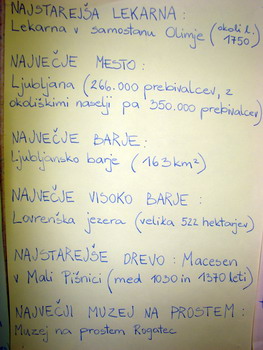 NAJSTAREJŠA LEKARNA:
Lekarna v samostanu Olimje (okoli l. 1750)
NAJVEČJE MESTO:
Ljubljana (266.000 prebivalcev, z
okoliškimi naselji pa 350.000 prebivalcev)
NAJVEČJE BARJE:
Ljubljansko barje (163 km²)
NAJVEČJE VISOKO BARJE:
Lovrenška jezera (velika 522 hektarjev)
NAJSTAREJŠE DREVO: Macesen
v Mali Pišnici (med 1030 in 1370 leti)
NAJVEČJI MUZEJ NA PROSTEM:
Muzej na prostem Rogatec